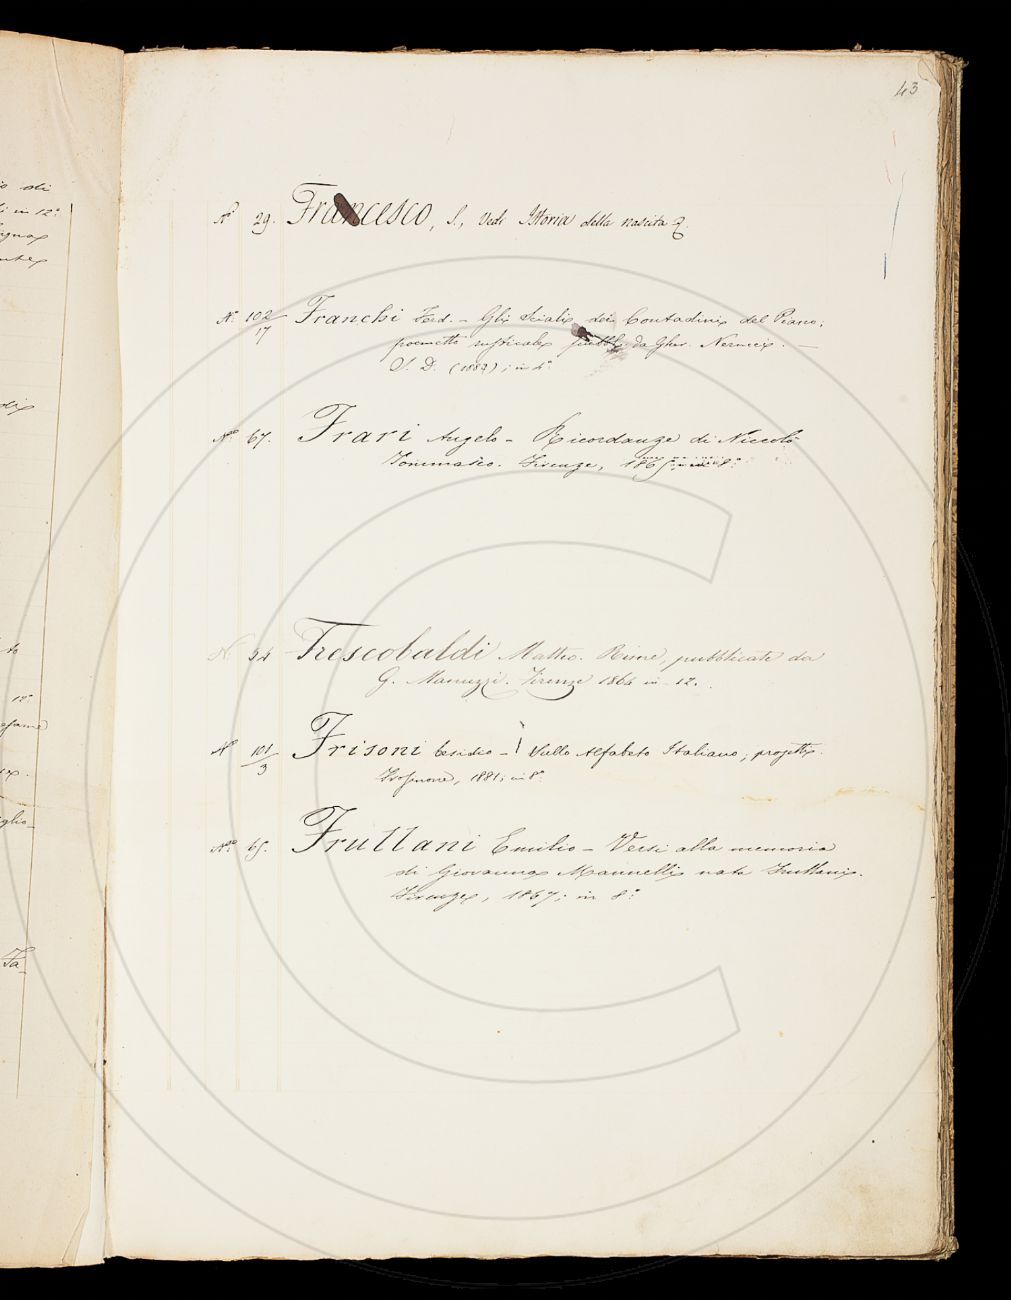 43
No 29. Francesco, S., Vedi Istoria della nascita &.
N. 102/17 Franchi Fed. - Gli Sciali dei Contadini del Piano;
poemetto rusticale pubbl. da Gher. Nerucci. —
S. D. (1882); in 4.o
No 67. Frari Angelo - Ricordanze di Niccolò
Tommaseo. Firenze, 1865 8.o
N 24 Frescobaldi Matteo. Rime, pubblicate da
G. Manuzzi. Firenze 1864 in-12.
No 101/3 Frisoni - Sullo Alfabeto Italiano; progetto.
Frosinone, 1881; in 8.o
No. 65. Frullani Emilio - Versi alla memoria
di Giovanna Mannelli nata Frullani.
Firenze, 1867; in 8.o
di
in 12.o
to
12.o